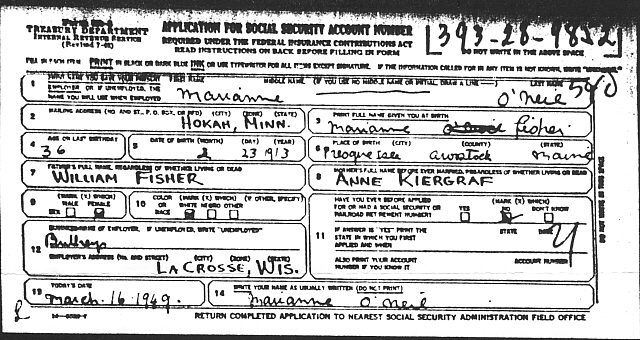 TREASURY DEPARTMENT
INTERNAL REVENUE SERVICE
APPLICATION FOR SOCIAL SECURITY ACCOUNT NUMBER
REQUIRED UNDER THE FEDERAL INSURANCE CONTRIBUTIONS ACT
READ INSTRUCTIONS ON BACK BEFORE FILLING IN FORM
DO NOT WRITE IN THE ABOVE SPACE
FILL IN EACH ITEM. PRINT IN BLACK OR DARK BLUE INK OR USE TYPEWRITER FOR ALL ITEMS EXCEPT SIGNATURE. IF THE INFORMATION CALLED FOR IN ANY ITEM IS NOT KNOWN, WRITE
1 EMPLOYER OR IF UNEMPLOYED, THE NAME YOU WILL USE WHEN EMPLOYED
FIRST NAME MIDDLE NAME (IF YOU USE NO MIDDLE NAME OR INITIAL, DRAW A LINE) LAST NAME
Marianne O'Neil
2 MAILING ADDRESS (NO. AND ST., P. O. BOX, OR RFD) (CITY) (ZONE) (STATE)
HOKAH, MINN.
3 PRINT FULL NAME GIVEN YOU AT BIRTH
Marianne Fisher
4 AGE ON LAST BIRTHDAY
36
5 DATE OF BIRTH (MONTH) (DAY) (YEAR)
23 1913
6 PLACE OF BIRTH (CITY) (COUNTY) (STATE)
Presque Isle Aroostock Maine
7 FATHER'S FULL NAME, REGARDLESS OF WHETHER LIVING OR DEAD
WILLIAM FISHER
8 MOTHER'S FULL NAME BEFORE EVER MARRIED, REGARDLESS OF WHETHER LIVING OR DEAD
ANNE KIERGRAF
9 SEX (MARK (X) WHICH) MALE FEMALE
10 COLOR OR RACE (MARK (X) WHICH) WHITE NEGRO OTHER (IF OTHER, SPECIFY)
11 HAVE YOU EVER BEFORE APPLIED FOR OR HAD A SOCIAL SECURITY OR RAILROAD RETIREMENT NUMBER? (MARK (X) WHICH) YES NO DON'T KNOW
IF ANSWER IS "YES" PRINT THE STATE IN WHICH YOU FIRST APPLIED AND WHEN STATE DATE
ALSO PRINT YOUR ACCOUNT NUMBER IF YOU KNOW IT ACCOUNT NUMBER
12 BUSINESS NAME OF EMPLOYER. IF UNEMPLOYED, WRITE "UNEMPLOYED"
EMPLOYER'S ADDRESS (NO. AND STREET) (CITY) (ZONE) (STATE)
LA CROSSE, WIS.
13 TODAY'S DATE
March. 16 1949.
14 WRITE YOUR NAME AS USUALLY WRITTEN (DO NOT PRINT)
Marianne O'Neil
RETURN COMPLETED APPLICATION TO NEAREST SOCIAL SECURITY ADMINISTRATION FIELD OFFICE